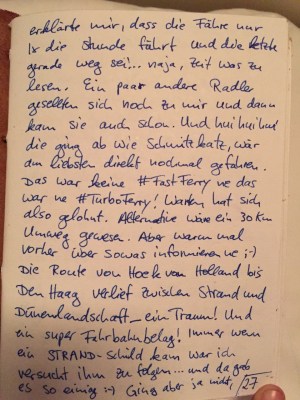 erklärte mir, dass die Fähre nur
1x die Stunde fährt und die letzte
gerade weg sei... naja, Zeit was zu
lesen. Ein paar andere Radler
gesellten sich noch zu mir und dann
kam sie auch schon. Und hui hui hui
die ging ab wie Schmitz Katz, wär
am liebsten direkt nochmal gefahren.
Das war keine #FastFerry ne das
war ne #TurboFerry! Warten hat sich
also gelohnt. Alternative wäre ein 30km
Umweg gewesen. Aber warum mal
vorher über sowas informieren ne ;-)
Die Route von Hoek van Holland bis
Den Haag verlief zwischen Strand und
Dünenlandschaft - ein Traum! Und
ein super Fahrbahnbelag! Immer wenn
ein STRAND-Schild kam war ich
versucht ihm zu folgen... und da gab
es so einige :-) Ging aber ja nicht, 27